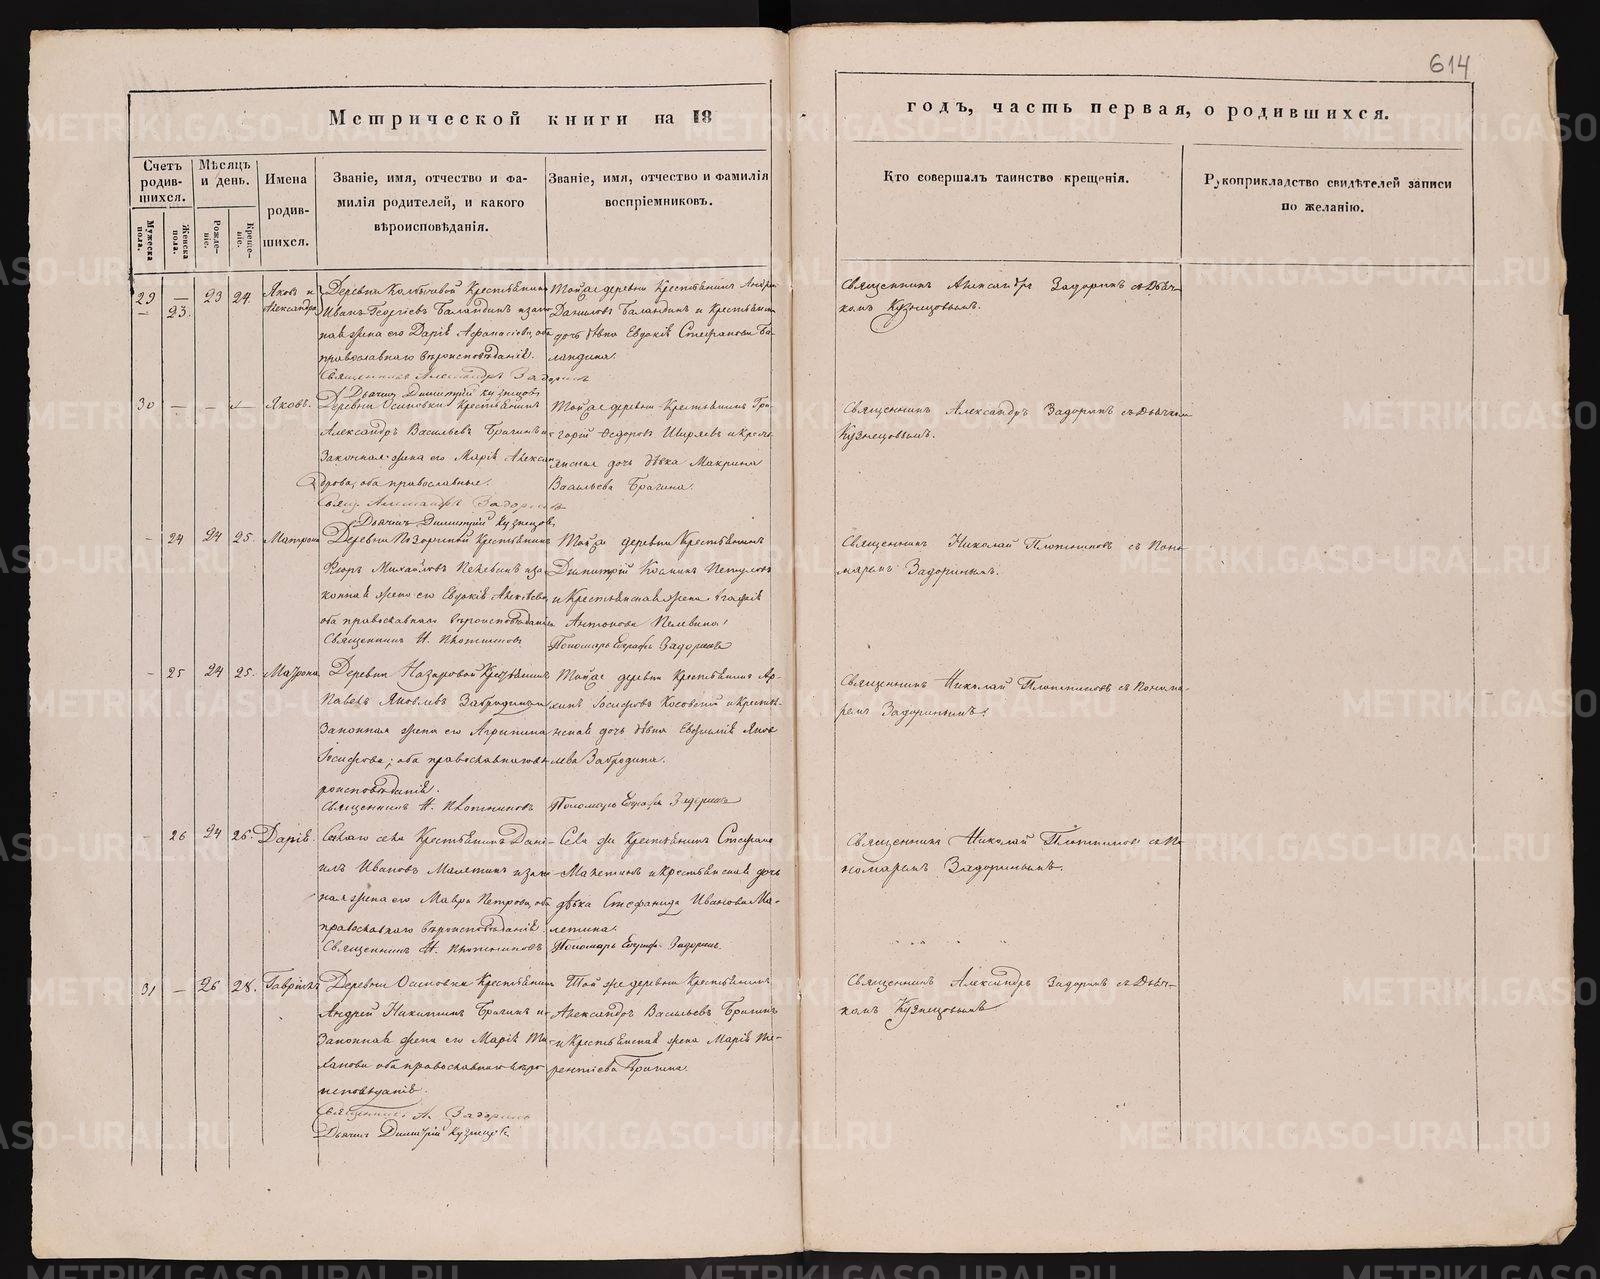 614
Метрической книги на 18
годъ, часть первая, о родившихся.
Счетъ родив-шихся.
Мѣсяцъ и день.
Имена родив-шихся.
Званіе, имя, отчество и фа-
милія родителей, и какого
вѣроисповѣданія.
Званіе, имя, отчество и фамилія
воспріемниковъ.
Кто совершалъ таинство крещенія.
Рукоприкладство свидѣтелей записи
по желанію.
Мужеска пола.
Женска пола.
Рожде-ніе.
Креще-ніе.
29 — 23 24.
— 23.
Яковъ и
Александра
Деревни Крестьянинъ
Иванъ Георгіевъ Баландинъ и закон
ная жена его Дарія Афанасіева, оба
православнаго вѣроисповѣданія.
Священникъ Александръ Задоринъ
Дьячекъ Димитрій Кузнецовъ
Той же деревни Крестьянинъ Андрей
Даниловъ Баландинъ и Крестьянская
дочь дѣвка Евдокія Стефанова Ба-
ландина.
Священникъ Александръ Задоринъ съ Дьяч-
комъ Кузнецовымъ.
30 — — —
Яковъ.
Деревни Осиновки Крестьянинъ
Александръ Васильевъ Брагинъ и
Законная жена его Марія Алексан
дрова, оба православные.
Свящ. Александръ Задоринъ
Дьячекъ Димитрій Кузнецовъ
Той же деревни Крестьянинъ Гри-
горій Федоровъ Ширяевъ и Кресть
янская дочь дѣвка Макрина
Васильева Брагина.
Священникъ Александръ Задоринъ съ Дьячкомъ
Кузнецовымъ.
— 24 24 25.
Матрона
Деревни Крестьянинъ
Михайловъ Пелевинъ и за
конная жена его Евдокія Алексѣева
оба православнаго вѣроисповѣданія
Священникъ Н. Плотниковъ
Той же деревни Крестьянинъ
Димитрій Козминъ
и Крестьянская жена Агафія
Антонова Пелевина.
Пономарь Евграфъ Задоринъ
Священникъ Николай Плотниковъ съ Поно-
маремъ Задоринымъ.
— 25 24 25.
Матрона
Деревни Назаровой Крестьянинъ
Павелъ Яковлевъ Забродинъ и
Законная жена его Агрипина
Іосифова; оба православнаго вѣ
роисповѣданія.
Священникъ Н. Плотниковъ
Той же деревни Крестьянинъ Ар-
хипъ Іосифовъ Косовскій и Крестья-
нская дочь дѣвка Евфимія Яков
лева Забродина.
Пономарь Евграфъ Задоринъ
Священникъ Николай Плотниковъ съ Понома-
ремъ Задоринымъ.
— 26 24 26.
Дарія.
села Крестьянинъ Дані-
илъ Ивановъ Малетинъ и закон
ная жена его Мавра Петрова, оба
православнаго вѣроисповѣданія
Священникъ Н. Плотниковъ
Села же Крестьянинъ Стефанъ
Малетинъ и Крестьянская дочь
дѣвка Стефанида Иванова Ма-
летина.
Пономарь Евграфъ Задоринъ.
Священникъ Николай Плотниковъ съ По
номаремъ Задоринымъ.
31 — 26 28.
Гавріилъ
Деревни Осиновки Крестьянинъ
Андрей Никитинъ Брагинъ и
Законная жена его Марія
оба православнаго вѣро
исповѣданія.
Священникъ А. Задоринъ
Дьячекъ Димитрій Кузнецовъ
Той же деревни Крестьянинъ
Александръ Васильевъ Брагинъ
и Крестьянская жена Марія Те-
рентіева Брагина.
Священникъ Александръ Задоринъ съ Дьяч-
комъ Кузнецовымъ
METRIKI.GASO-URAL.RU